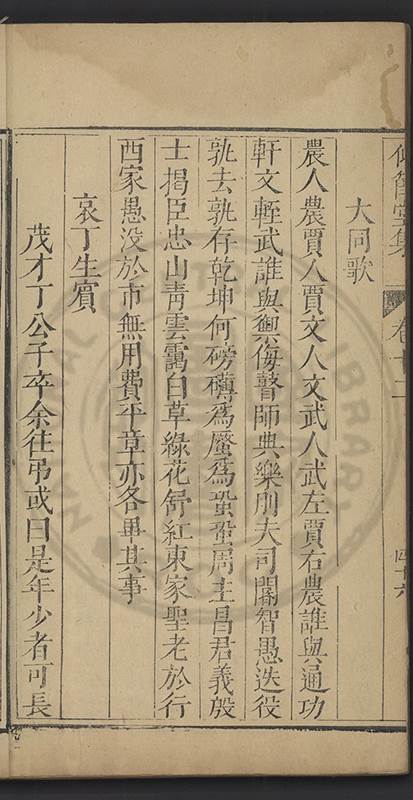 集 卷十二 四十六
大同歌
農人農賈人賈文人文武人武左賈右農誰與通功
軒文輊武誰與禦侮瞽師典樂刖夫司閽智愚迭役
孰去孰存乾坤何磅礴為蜃為蛩蛩周士昌君義殷
士揭臣忠山靑雲靄白草綠花舒紅東家聖老於行
西家愚没於市無用費平章亦各畢其事
哀丁生賓
茂才丁公子卒余往弔或曰是年少者可長